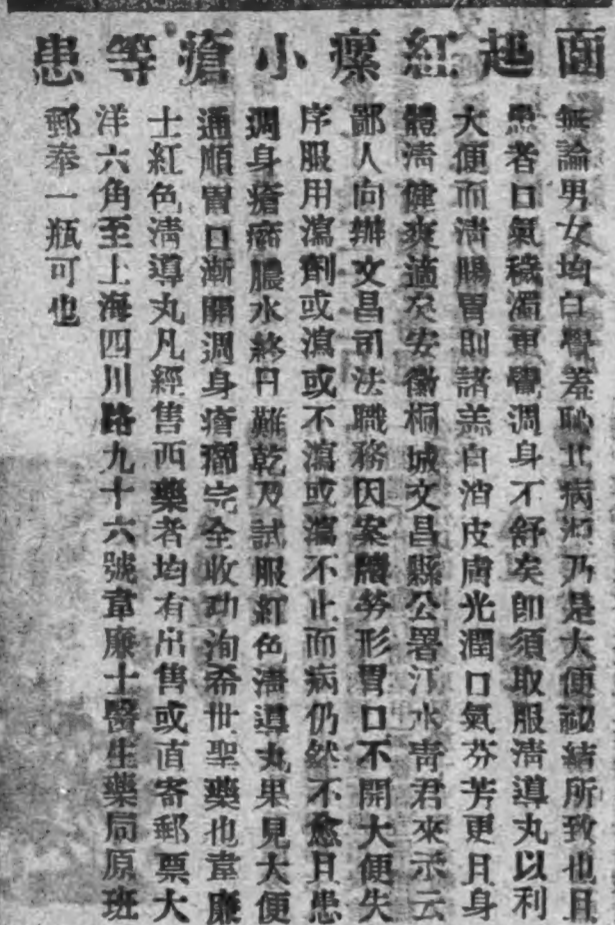 面起紅瘰小瘡等患
無論男女均自覺羞恥此病源乃是大便祕結所致也且
患者口氣穢濁更覺週身不舒矣即須取服淸導丸以利
大便而淸腸胃則諸恙自消皮膚光潤口氣芬芳更且身
體淸健爽適矣安徽桐城文昌縣公署江水靑君來示云
鄙人向辦文昌司法職務因案牘勞形胃口不開大便失
序服用瀉劑或瀉或不瀉或瀉不止而病仍然不愈且患
週身瘡癤膿水終日難乾乃試服紅色淸導丸果見大便
通順胃口漸開週身瘡癤完全收功洵希世聖藥也韋廉
士紅色淸導丸凡經售西藥者均有出售或直寄郵票大
洋六角至上海四川路九十六號韋廉士醫生藥局原班
郵奉一瓶可也